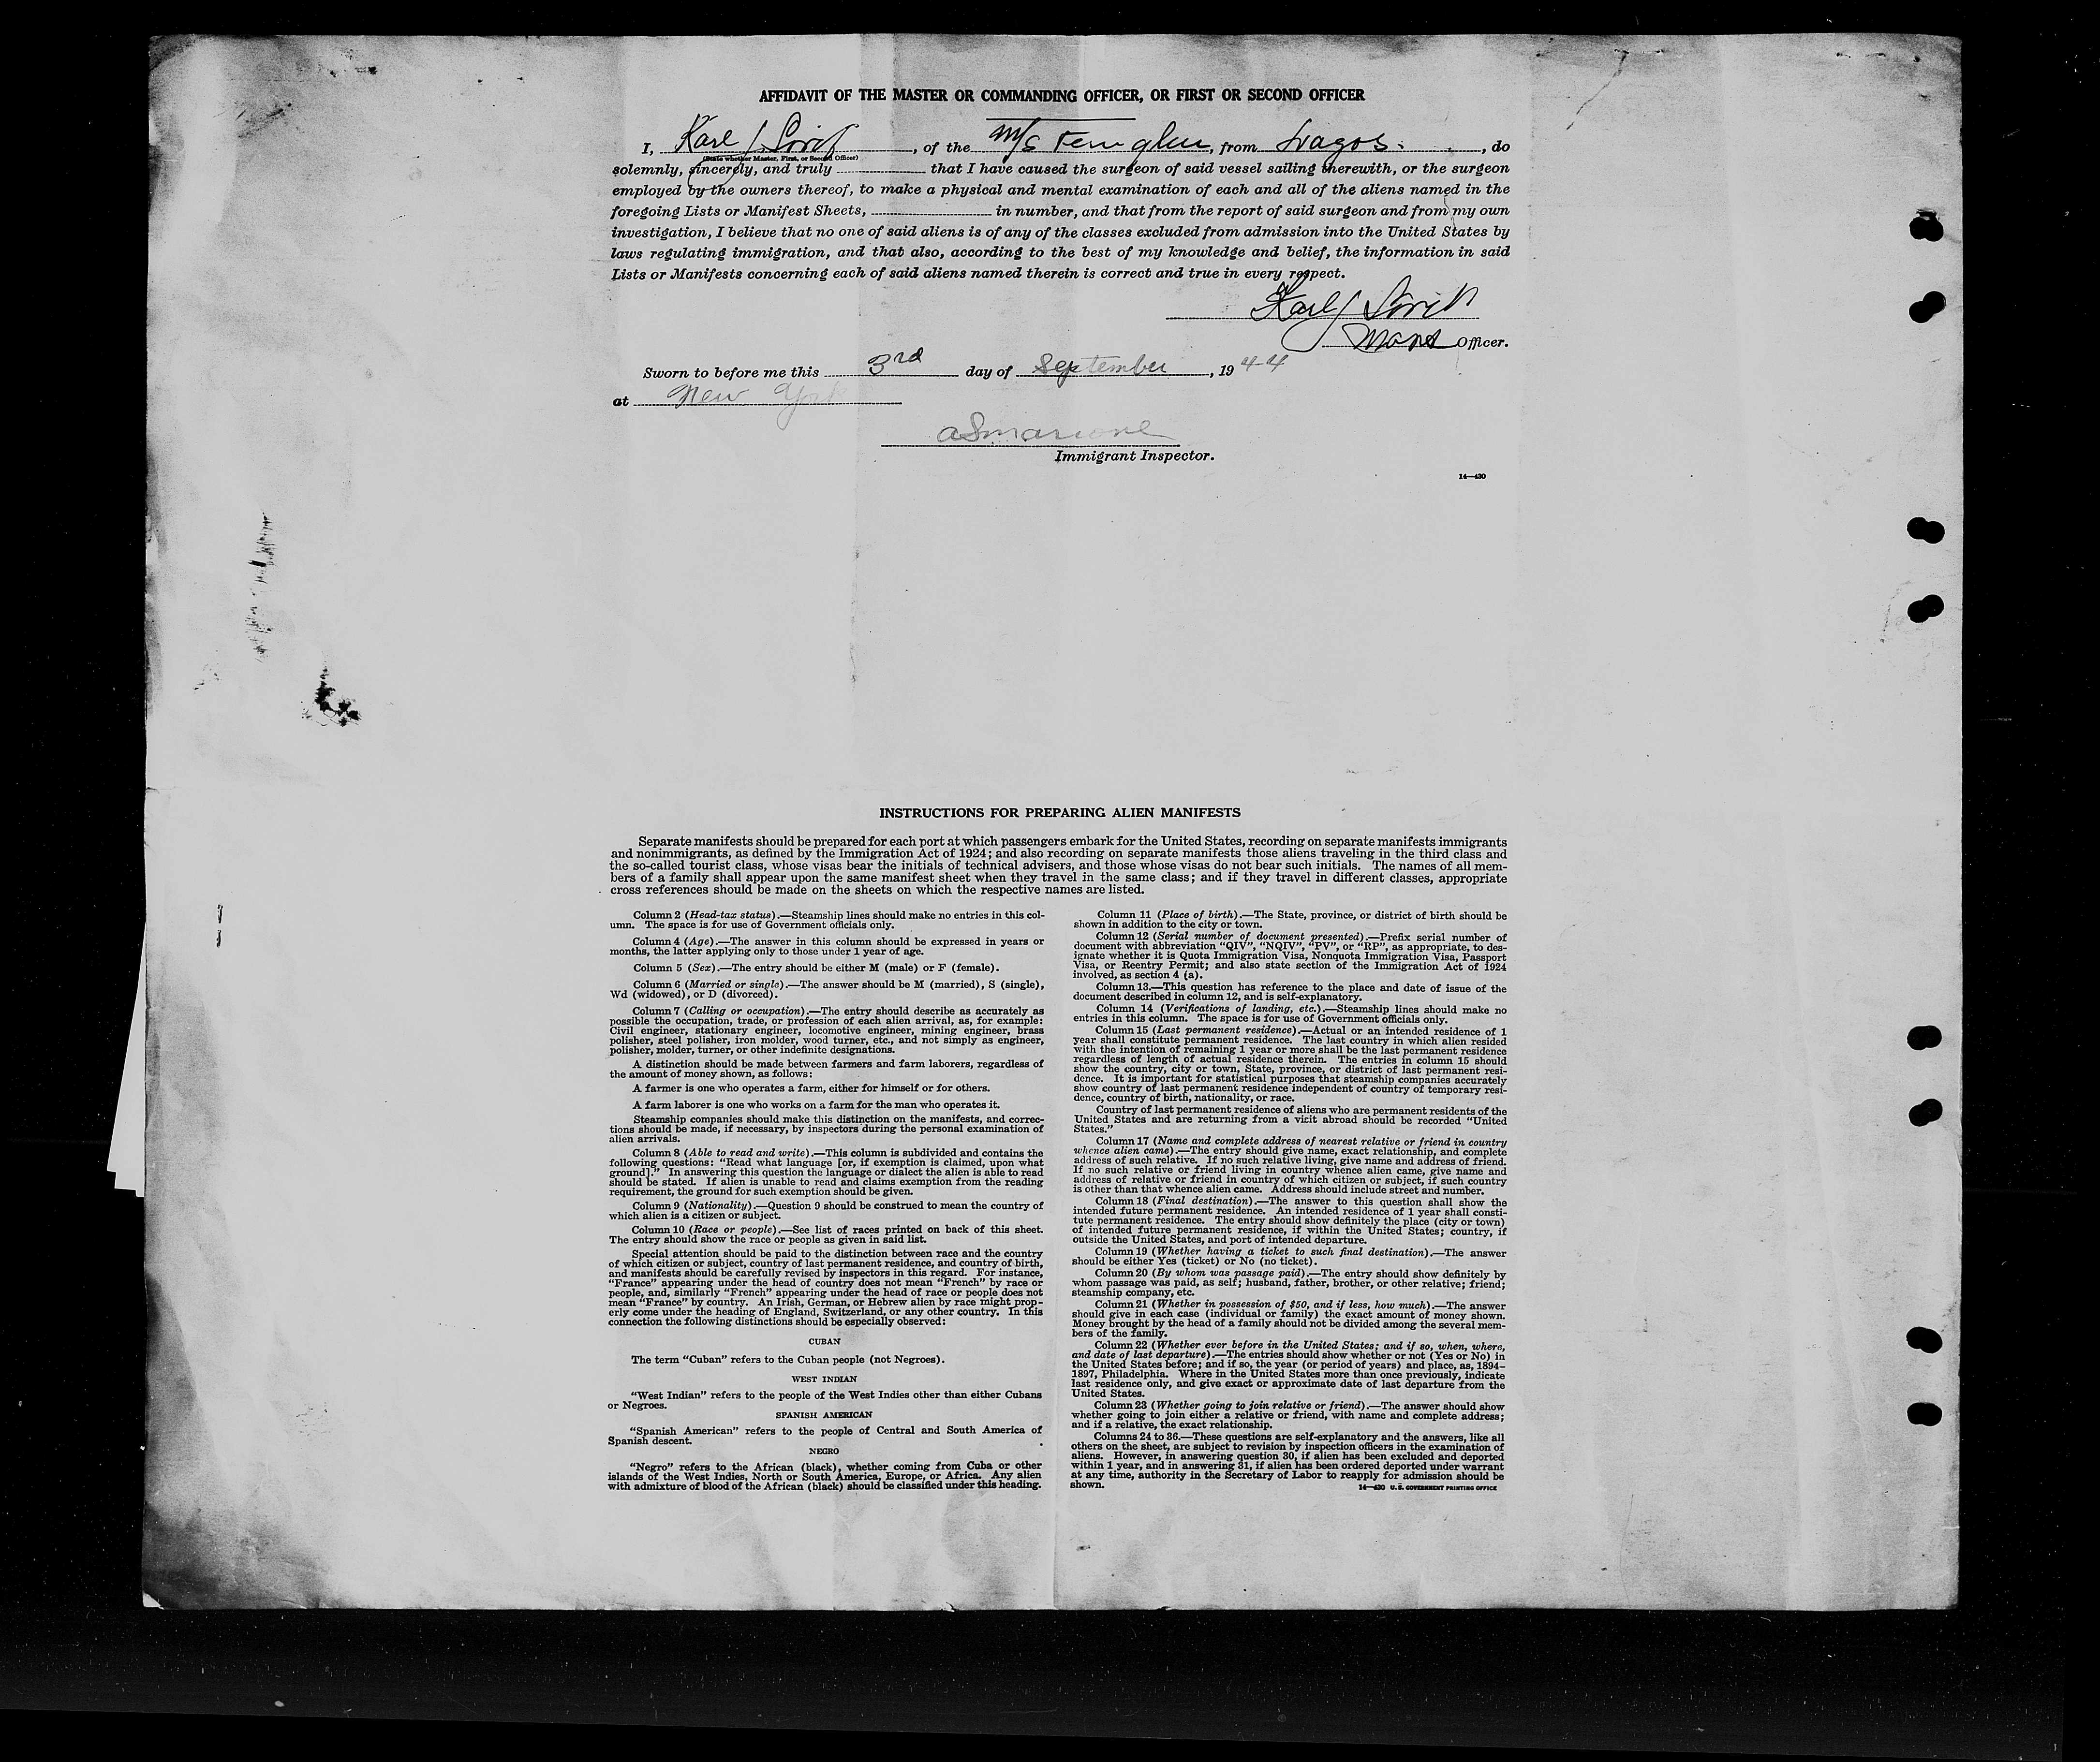 AFFIDAVIT OF THE MASTER OR COMMANDING OFFICER, OR FIRST OR SECOND OFFICER
I, Karl J. , of the M/S Fernglen, from Lagos. , do
(State whether Master, First, or Second Officer)
solemnly, sincerely, and truly that I have caused the surgeon of said vessel sailing therewith, or the surgeon
employed by the owners thereof, to make a physical and mental examination of each and all of the aliens named in the
foregoing Lists or Manifest Sheets, in number, and that from the report of said surgeon and from my own
investigation, I believe that no one of said aliens is of any of the classes excluded from admission into the United States by
laws regulating immigration, and that also, according to the best of my knowledge and belief, the information in said
Lists or Manifests concerning each of said aliens named therein is correct and true in every respect.
Karl J
Officer.
Sworn to before me this 3rd day of September, 1944
at New York
Immigrant Inspector.
14—430
INSTRUCTIONS FOR PREPARING ALIEN MANIFESTS
Separate manifests should be prepared for each port at which passengers embark for the United States, recording on separate manifests immigrants
and nonimmigrants, as defined by the Immigration Act of 1924; and also recording on separate manifests those aliens traveling in the third class and
the so-called tourist class, whose visas bear the initials of technical advisers, and those whose visas do not bear such initials. The names of all mem-
bers of a family shall appear upon the same manifest sheet when they travel in the same class; and if they travel in different classes, appropriate
cross references should be made on the sheets on which the respective names are listed.
Column 2 (Head-tax status).—Steamship lines should make no entries in this col-
umn. The space is for use of Government officials only.
Column 4 (Age).—The answer in this column should be expressed in years or
months, the latter applying only to those under 1 year of age.
Column 5 (Sex).—The entry should be either M (male) or F (female).
Column 6 (Married or single).—The answer should be M (married), S (single),
Wd (widowed), or D (divorced).
Column 7 (Calling or occupation).—The entry should describe as accurately as
possible the occupation, trade, or profession of each alien arrival, as, for example:
Civil engineer, stationary engineer, locomotive engineer, mining engineer, brass
polisher, steel polisher, iron molder, wood turner, etc., and not simply as engineer,
polisher, molder, turner, or other indefinite designations.
A distinction should be made between farmers and farm laborers, regardless of
the amount of money shown, as follows:
A farmer is one who operates a farm, either for himself or for others.
A farm laborer is one who works on a farm for the man who operates it.
Steamship companies should make this distinction on the manifests, and correc-
tions should be made, if necessary, by inspectors during the personal examination of
alien arrivals.
Column 8 (Able to read and write).—This column is subdivided and contains the
following questions: "Read what language [or, if exemption is claimed, upon what
ground]." In answering this question the language or dialect the alien is able to read
should be stated. If alien is unable to read and claims exemption from the reading
requirement, the ground for such exemption should be given.
Column 9 (Nationality).—Question 9 should be construed to mean the country of
which alien is a citizen or subject.
Column 10 (Race or people).—See list of races printed on back of this sheet.
The entry should show the race or people as given in said list.
Special attention should be paid to the distinction between race and the country
of which citizen or subject, country of last permanent residence, and country of birth,
and manifests should be carefully revised by inspectors in this regard. For instance,
"France" appearing under the head of country does not mean "French" by race or
people, and, similarly "French" appearing under the head of race or people does not
mean "France" by country. An Irish, German, or Hebrew alien by race might prop-
erly come under the heading of England, Switzerland, or any other country. In this
connection the following distinctions should be especially observed:
CUBAN
The term "Cuban" refers to the Cuban people (not Negroes).
WEST INDIAN
"West Indian" refers to the people of the West Indies other than either Cubans
or Negroes.
SPANISH AMERICAN
"Spanish American" refers to the people of Central and South America of
Spanish descent.
NEGRO
"Negro" refers to the African (black), whether coming from Cuba or other
islands of the West Indies, North or South America, Europe, or Africa. Any alien
with admixture of blood of the African (black) should be classified under this heading.
Column 11 (Place of birth).—The State, province, or district of birth should be
shown in addition to the city or town.
Column 12 (Serial number of document presented).—Prefix serial number of
document with abbreviation "QIV", "NQIV", "PV", or "RP", as appropriate, to des-
ignate whether it is Quota Immigration Visa, Nonquota Immigration Visa, Passport
Visa, or Reentry Permit; and also state section of the Immigration Act of 1924
involved, as section 4 (a).
Column 13.—This question has reference to the place and date of issue of the
document described in column 12, and is self-explanatory.
Column 14 (Verifications of landing, etc.).—Steamship lines should make no
entries in this column. The space is for use of Government officials only.
Column 15 (Last permanent residence).—Actual or an intended residence of 1
year shall constitute permanent residence. The last country in which alien resided
with the intention of remaining 1 year or more shall be the last permanent residence
regardless of length of actual residence therein. The entries in column 15 should
show the country, city or town, State, province, or district of last permanent resi-
dence. It is important for statistical purposes that steamship companies accurately
show country of last permanent residence independent of country of temporary resi-
dence, country of birth, nationality, or race.
Country of last permanent residence of aliens who are permanent residents of the
United States and are returning from a visit abroad should be recorded "United
States."
Column 17 (Name and complete address of nearest relative or friend in country
whence alien came).—The entry should give name, exact relationship, and complete
address of such relative. If no such relative living, give name and address of friend.
If no such relative or friend living in country whence alien came, give name and
address of relative or friend in country of which citizen or subject, if such country
is other than that whence alien came. Address should include street and number.
Column 18 (Final destination).—The answer to this question shall show the
intended future permanent residence. An intended residence of 1 year shall consti-
tute permanent residence. The entry should show definitely the place (city or town)
of intended future permanent residence, if within the United States; country, if
outside the United States, and port of intended departure.
Column 19 (Whether having a ticket to such final destination).—The answer
should be either Yes (ticket) or No (no ticket).
Column 20 (By whom was passage paid).—The entry should show definitely by
whom passage was paid, as self; husband, father, brother, or other relative; friend;
steamship company, etc.
Column 21 (Whether in possession of $50, and if less, how much).—The answer
should give in each case (individual or family) the exact amount of money shown.
Money brought by the head of a family should not be divided among the several mem-
bers of the family.
Column 22 (Whether ever before in the United States; and if so, when, where,
and date of last departure).—The entries should show whether or not (Yes or No) in
the United States before; and if so, the year (or period of years) and place, as, 1894–
1897, Philadelphia. Where in the United States more than once previously, indicate
last residence only, and give exact or approximate date of last departure from the
United States.
Column 23 (Whether going to join relative or friend).—The answer should show
whether going to join either a relative or friend, with name and complete address;
and if a relative, the exact relationship.
Columns 24 to 36.—These questions are self-explanatory and the answers, like all
others on the sheet, are subject to revision by inspection officers in the examination of
aliens. However, in answering question 30, if alien has been excluded and deported
within 1 year, and in answering 31, if alien has been ordered deported under warrant
at any time, authority in the Secretary of Labor to reapply for admission should be
shown.
14—430 U. S. GOVERNMENT PRINTING OFFICE